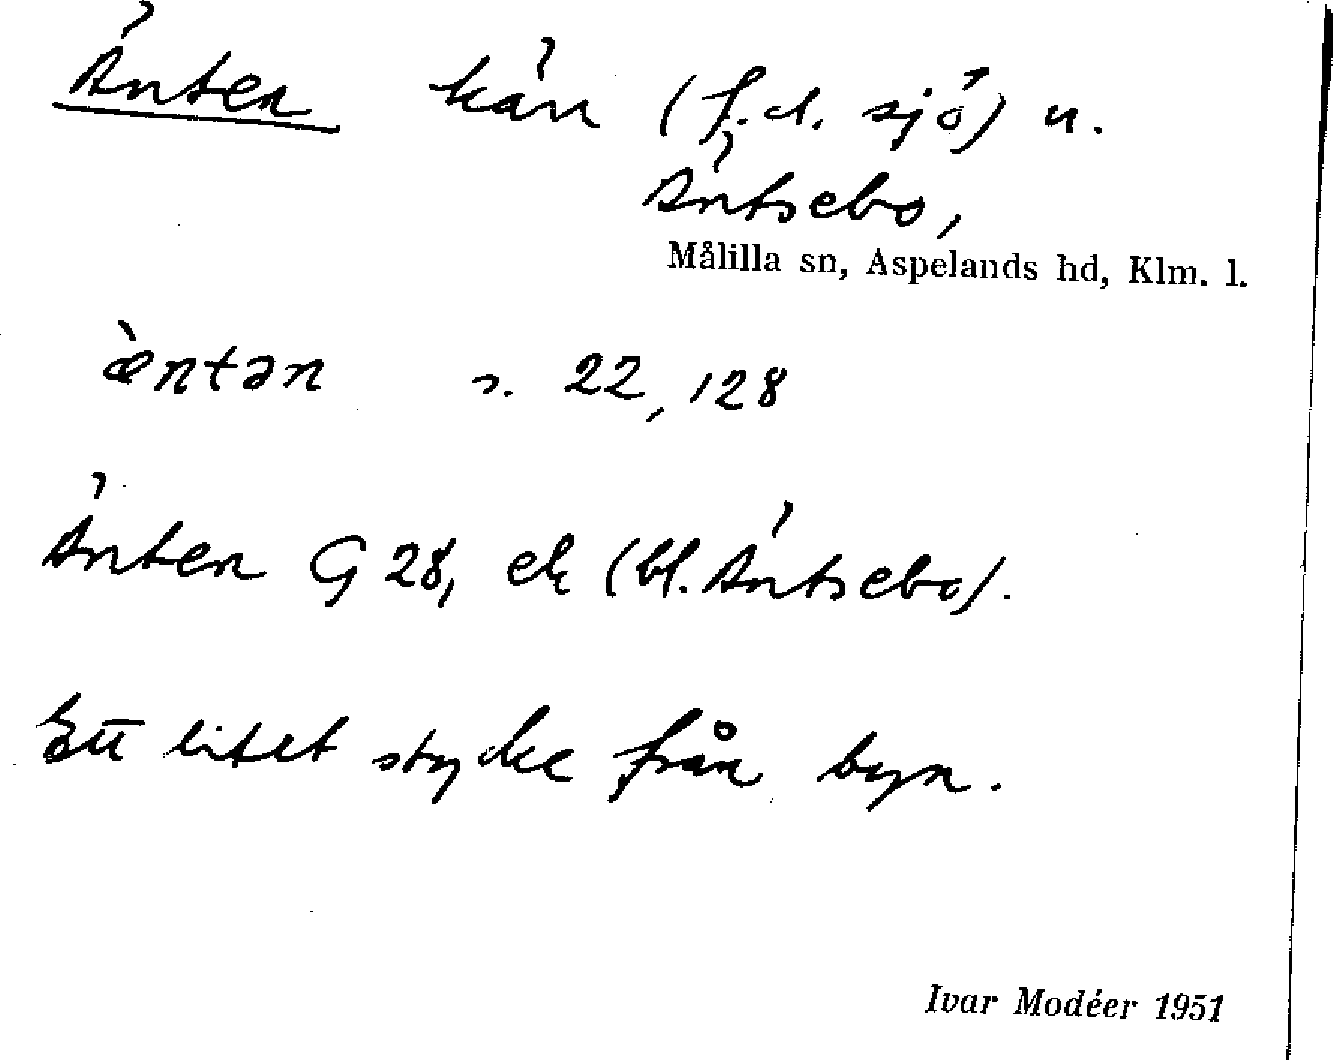 Änten kärr (f.d. sjö) u.
Äntsebo,
Målilla sn, Aspelands hd, Klm. l.
æ̀ntən s. 22, 128
Änten G 28, ek (bl. Äntsebo).
Ett litet stycke från byn.
Ivar Modéer 1951